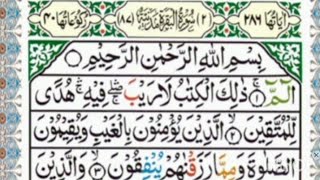 اٰيَاتُهَا ٢٨٦ (٢) سُوْرَةُ الْبَقَرَةِ مَدَنِيَّةٌ (٨٧) رُكُوْعَاتُهَا ٤٠
بِسْمِ اللّٰهِ الرَّحْمٰنِ الرَّحِيْمِ
الٓمّٓ ۚ ﴿١﴾ ذٰلِكَ الْكِتٰبُ لَا رَيْبَ ۛۖ فِيْهِ ۛۚ هُدًى
لِّلْمُتَّقِيْنَ ﴿٢﴾ الَّذِيْنَ يُؤْمِنُوْنَ بِالْغَيْبِ وَيُقِيْمُوْنَ
الصَّلٰوةَ وَمِمَّا رَزَقْنٰهُمْ يُنْفِقُوْنَ ﴿٣﴾ وَالَّذِيْنَ